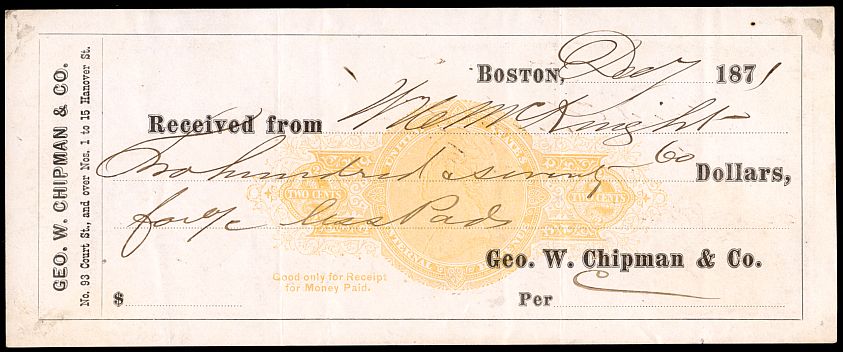 GEO. W. CHIPMAN & CO.
No. 93 Court St., and over Nos. 1 to 15 Hanover St.
BOSTON, Dec 7 1871
Received from W McKnight
Two hundred & seventy 60 Dollars,
for
UNITED STATES
TWO CENTS TWO CENTS
INTERNAL REVENUE
Good only for Receipt
for Money Paid.
Geo. W. Chipman & Co.
$ Per C